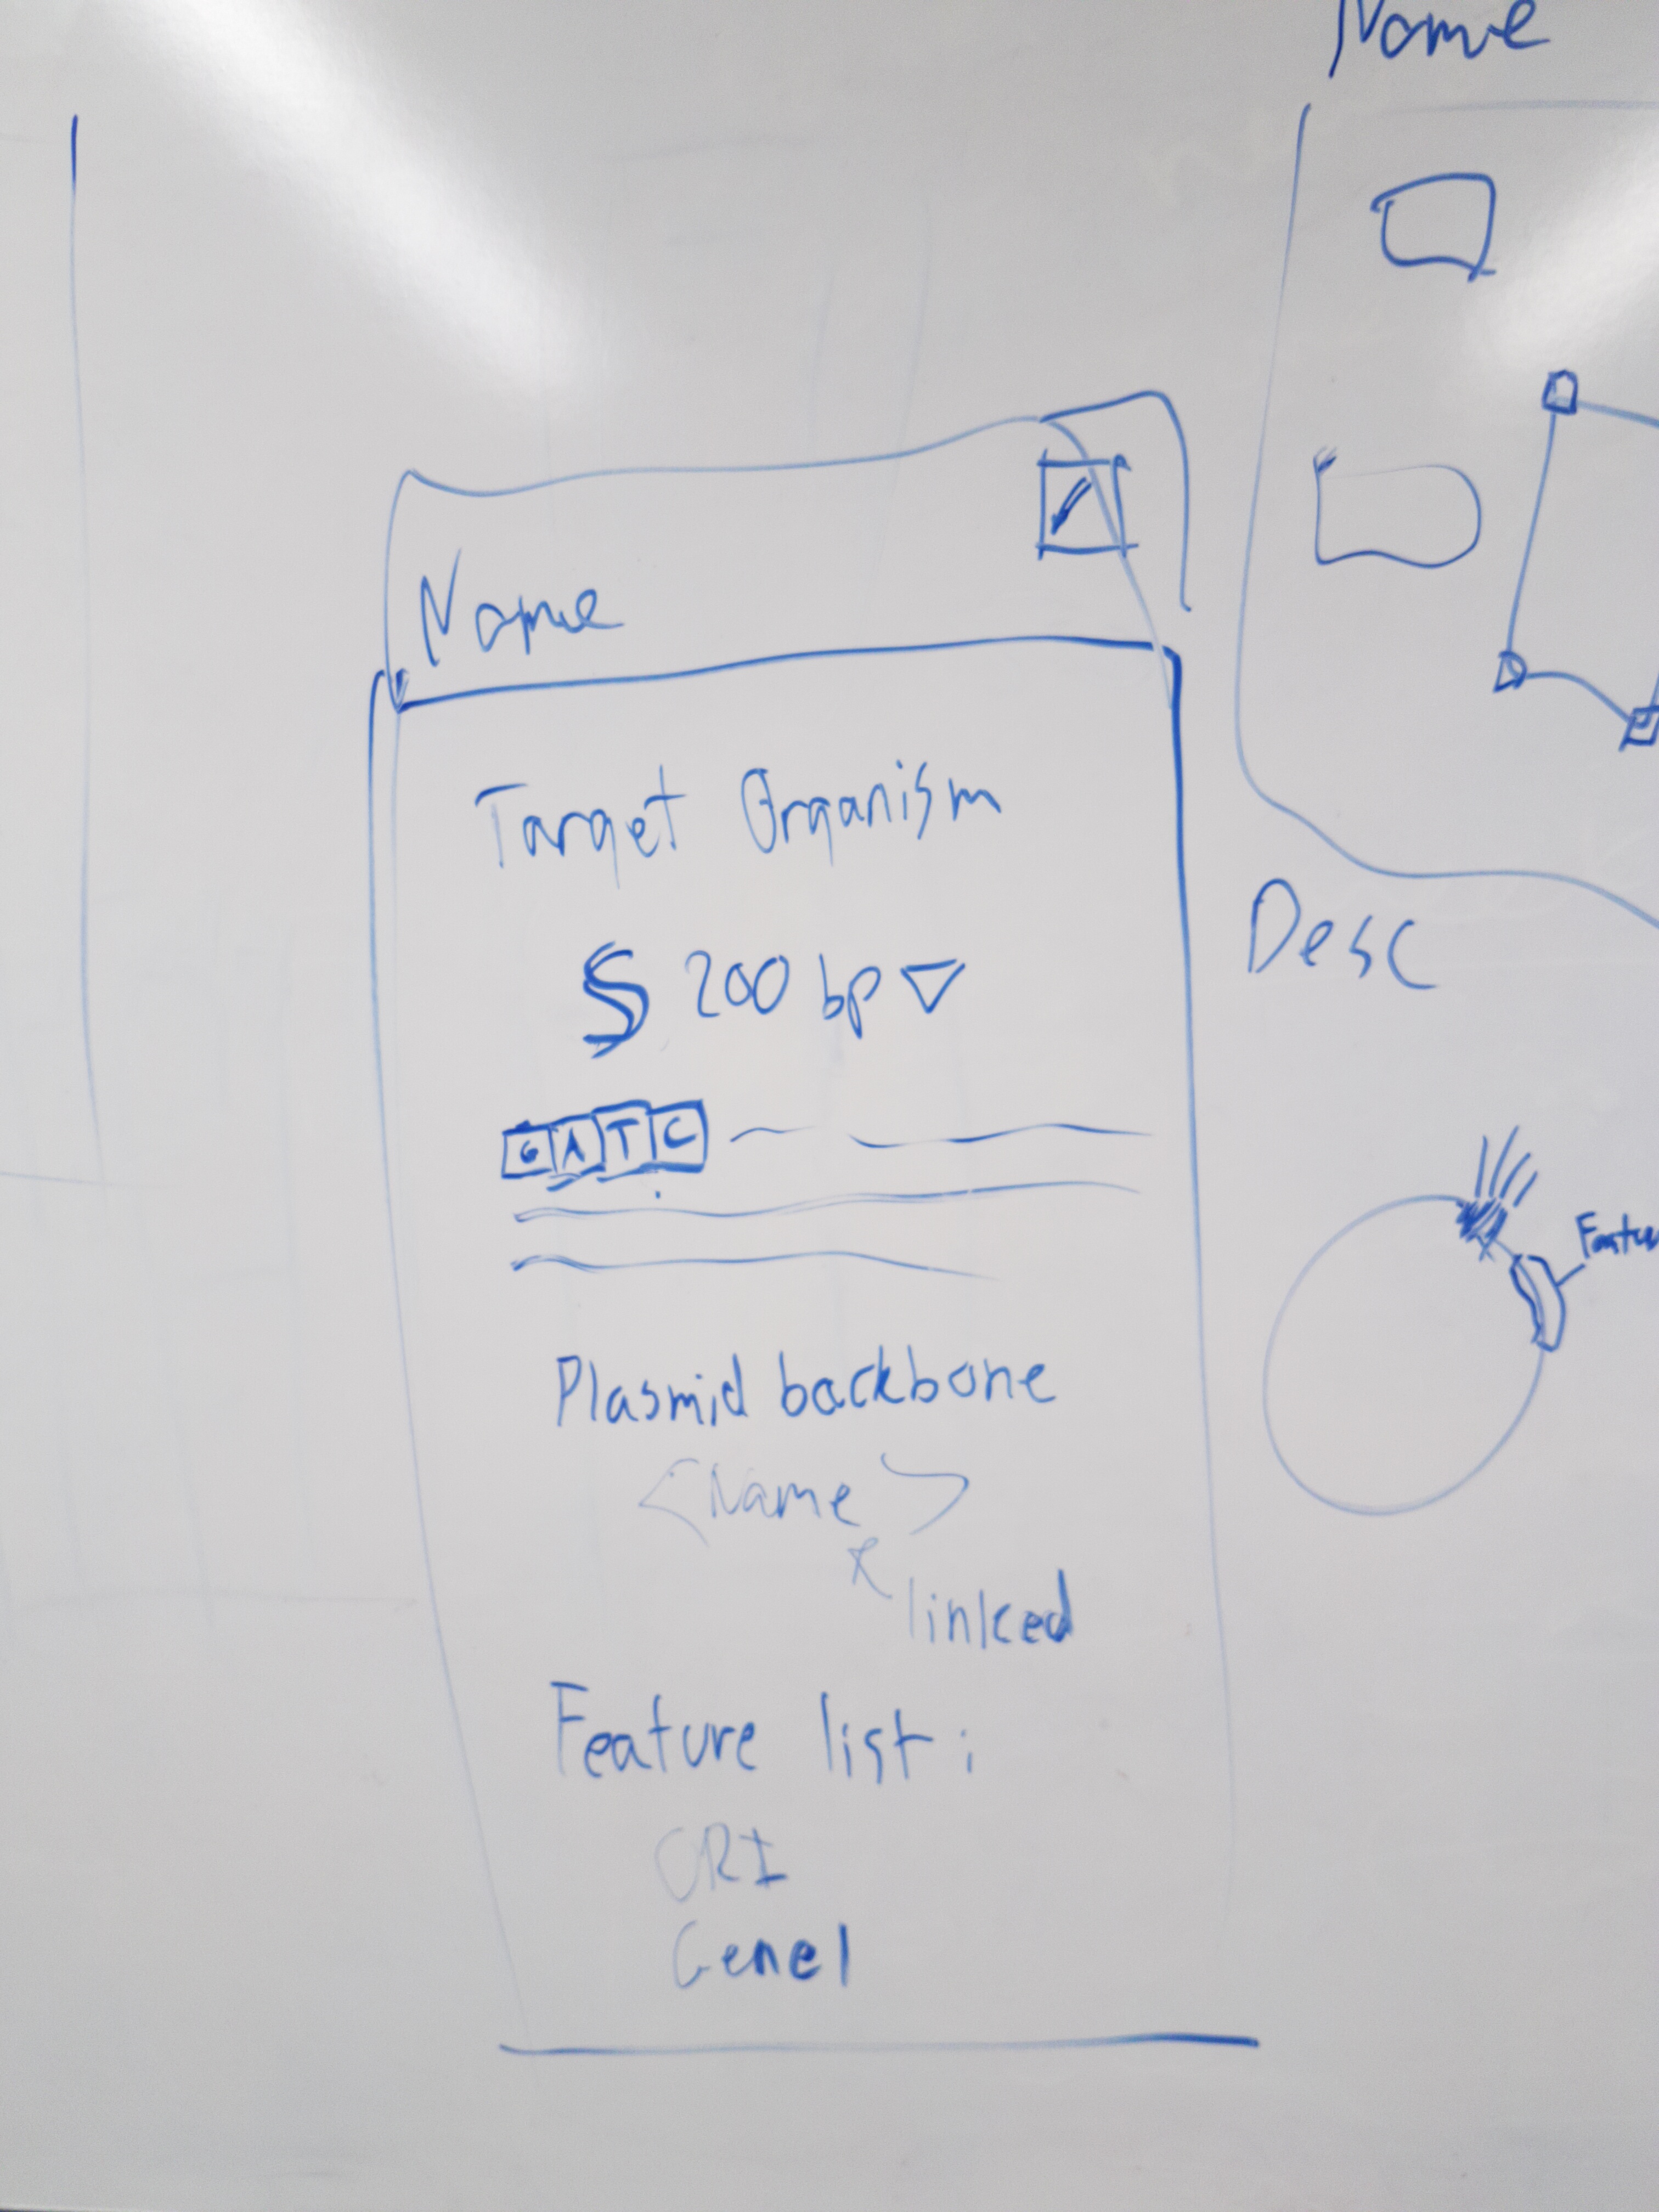 Name
Name
Target Organism
200 bp
GATC
Plasmid backbone
<Name>
linked
Feature list:
ORI
Gene1
Desc
Featu